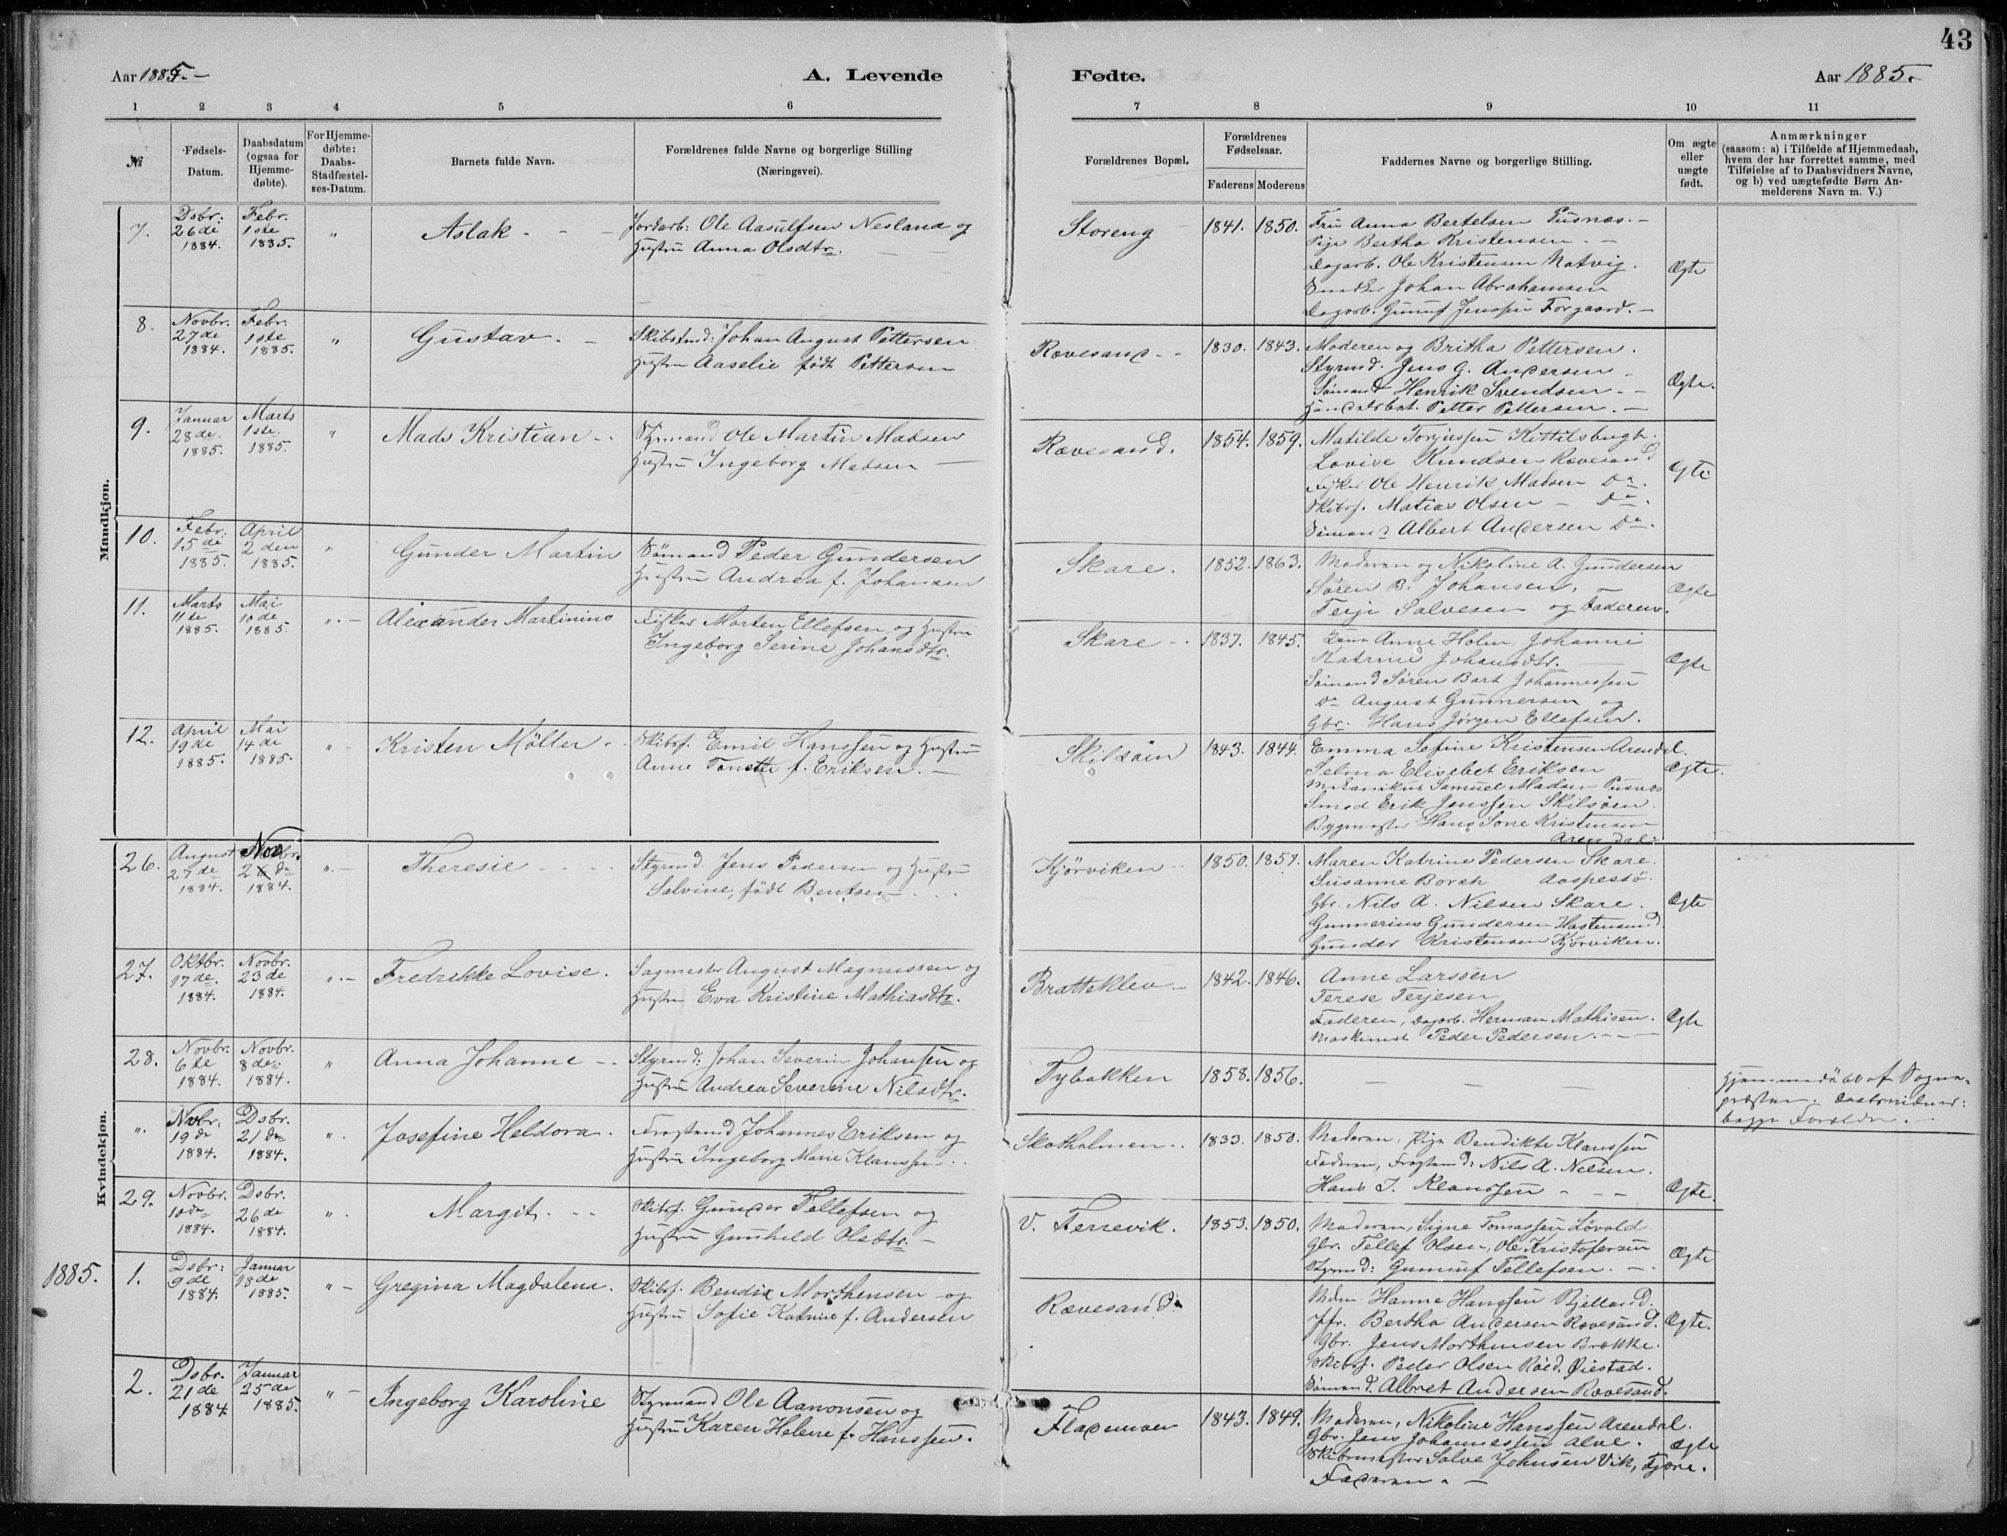 43
Aar 1885.-
A. Levende
Fødte.
Aar 1885.-
1 2 3 4 5 6 7 8 9 10 11
№
Fødsels-Datum.
Daabsdatum (ogsaa for Hjemme-døbte).
For Hjemme-døbte: Daabs-Stadfæstel-ses-Datum.
Barnets fulde Navn.
Forældrenes fulde Navne og borgerlige Stilling (Næringsvei).
Forældrenes Bopæl.
Forældrenes Fødselsaar.
Faderens Moderens
Faddernes Navne og borgerlige Stilling.
Om ægte eller uægte født.
Anmærkninger
(saasom: a) i Tilfælde af Hjemmedaab,
hvem der har forrettet samme, med
Tilføielse af to Daabsvidners Navne,
og b) ved uægtefødte Børn An-
melderens Navn m. V.)
Mandkjøn.
7. Dsbr: 26de 1884. Febr. 1ste 1885. " Aslak - - - Jordarb: Ole Aasulfsen Nesland og
Hustru Anna Olsdtr.
Storeng 1841. 1850. Fru Anna Bertelsen Pusnæs. -
Pige Bertha Kristensen - -
Dagarb. Ole Kristensen Natvig.
Johan Abrahamsen
Dagarb. Gunuf Jenssen Torgaard. -
Ægte
8. Novbr. 27de 1884. Febr. 1ste 1885. " Gustav. - Skibstmd: Johan August Pettersen
Hustru Aaselie født Pettersen
Rævesand - - 1830. 1843. Moderen og Britha Pettersen.
Styrmd. Jens G. Andersen
Sømand Henrik Svendsen - -
Petter Pettersen. -
Ægte.
9. Januar 28de. 1885. Marts 1ste. 1885. " Mads Kristian - . Styrmand Ole Martin Madsen
Hustru Ingeborg Madsen -
Rævesand. 1854. 1859. Matilde Torjussen Kittilsbugt.
Lovise Knudsen Rævesand
Ole Henrik Madsen Do.
Skibsf. Matias Olsen - Do.
Sømand Albert Andersen Do.
Ægte
10. Febr: 15de 1885. April 2den 1885. " Gunder Martin Sømand Peder Gundersen
Hustru Andrea f. Johansen
Skare. 1852. 1863. Moderen og Nikoline A. Gundersen
Søren B. Johansen,
Terje Salvesen og Faderen.
Ægte
11. Marts 11te 1885. Mai 10de 1885. ". - Alexander Martinius Fisker Morten Ellefsen og Hustru
Ingeborg Serine Johansdtr.
Skare - . 1837. 1845. Anne Holm, Johanne
Katrine Johansdtr. -
Sømand Søren Bart Johannessen
Do August Gunnersen og
Gbr. Hans Jörgen Ellefsen.
Ægte
12. April 19de 1885. Mai 14de 1885. " Kristen Möller - - Skibsf. Emil Hanssen og Hustru
Anne Tonette f. Eriksen. -
Skilsöen 1843. 1844. Emma Sofine Kristensen Arendal.
Selma Elisebet Eriksen
Mekanikus Samuel Madsen Pusnæs
Smed Erik Jenssen Skilsöen.
Bygmester Hans Tone Kristensen
Arendal.
Ægte.
Kvindekjøn.
26. August 27de 1884. Nov 2den 1884. ". - Theresie - - - - Styrmd. Jens Pedersen og Hustru
Salvine, født Bentsen - . .
Kjörviken - 1850. 1857. Maren Katrine Pedersen Skare.
Susanne Borch Aaspestö.
Gbr. Nils A. Nilsen Skare.
Gunnerius Gundersen Hastensund
Gunder Kristensen Kjörviken.
Ægte
27. Oktbr. 17de. 1884. Novbr. 23de 1884. ". - Fredrikke Lovise. Sagmester August Magnussen og
Hustru Eva Kristine Mathiasdtr.
Bratteklev - 1842. 1846. Anne Larssen
Terese Terjesen
Faderen, Dagarb. Herman Mathisen.
Maskinist Peder Pedersen. - -
Ægte
28. Novbr. 6te 1884. Novbr. 8de 1884. " Anna Johanne - . Styrmd: Johan Severin Johansen og
Hustru Andrea Severine Nilsdtr.
Tybakken 1858. 1856. - -
Hjemmedøbt af Sogne-
præsten. Daabsvidner:
begge Foreldre. -
". Novbr: 19de 1884. Dsbr. 21de 1884. ". Josefine Heldora. Fragtmand Johannes Eriksen og
Hustru Ingeborg Marie Klaussen - . .
Skotholmen. . 1833. 1850. Moderen, Pige Bendikte Klaussen
Faderen, Fragtmand: Nils A. Nilsen.
Hans J. Klaussen - - -
Ægte.
29. Novbr. 10de 1884. Dsbr. 26de 1884. ". Margit. - - Skibsf. Gunder Tellefsen og
Hustru Gunhild Olsdtr. -
V. Terrevik. 1853. 1850. Moderen, Signe Tomassen Lövold
Gbr. Tellef Olsen, Ole Kristofersen
Styrmd: Gunnuf Tellefsen. - .
Ægte
1885. 1. Dsbr: 9de 1884. Januar 18de 1885. " - Gregina Magdalena. Skibsf. Bendix Morthensen og
Hustru Sofie Katrine f. Andersen
Rævesand. Mdm. Hanne Hanssen Bjelland.
Jfr. Bertha Andersen Rævesand.
Gbr. Jens Morthensen Brække.
Skibsf. Peder Olsen Röed Øiestad.
Sømand. Albret Andersen Rævesand.
Ægte.
2. Dsbr. 21de 1884. Januar 25de 1885. " - Ingeborg Karoline Styrmand Ole Aanonsen og
Hustru Karen Helene f. Hanssen.
Flademoen 1843. 1849. Moderen, Nikoline Hanssen Arendal.
Gbr. Jens Johannessen Alve.
Skibsmester Salve Johnsen Vik, Fjære.
Faderen - -
Ægte